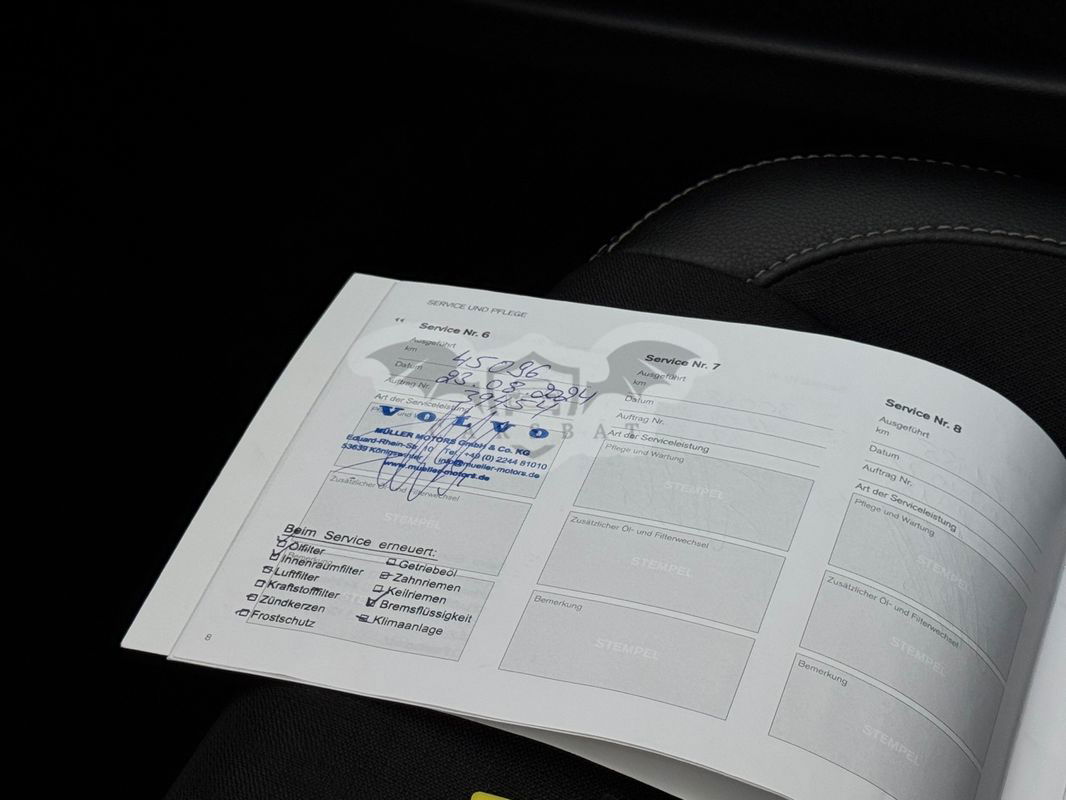 SERVICE UND PFLEGE
Service Nr. 6
Ausgeführt
km 45096
Datum 23.08.2024
Auftrag Nr.
Art der Serviceleistung
VOLVO
MÜLLER MOTORS GmbH & Co. KG
Eduard-Rhein-Str. 10 Tel. +49 (0) 2244 81010
53639 Königswinter info@mueller-motors.de
www.mueller-motors.de
Zusätzlicher Öl- und Filterwechsel
STEMPEL
Beim Service erneuert:
Ölfilter
Innenraumfilter
Luftfilter
Kraftstofffilter
Zündkerzen
Frostschutz
Getriebeöl
Zahnriemen
Keilriemen
Bremsflüssigkeit
Klimaanlage
8
Service Nr. 7
Ausgeführt
km
Datum
Auftrag Nr.
Art der Serviceleistung
Pflege und Wartung
STEMPEL
Zusätzlicher Öl- und Filterwechsel
STEMPEL
Bemerkung
STEMPEL
Service Nr. 8
Ausgeführt
km
Datum
Auftrag Nr.
Art der Serviceleistung
Pflege und Wartung
STEMPEL
Zusätzlicher Öl- und Filterwechsel
STEMPEL
Bemerkung
STEMPEL
CARSBAT